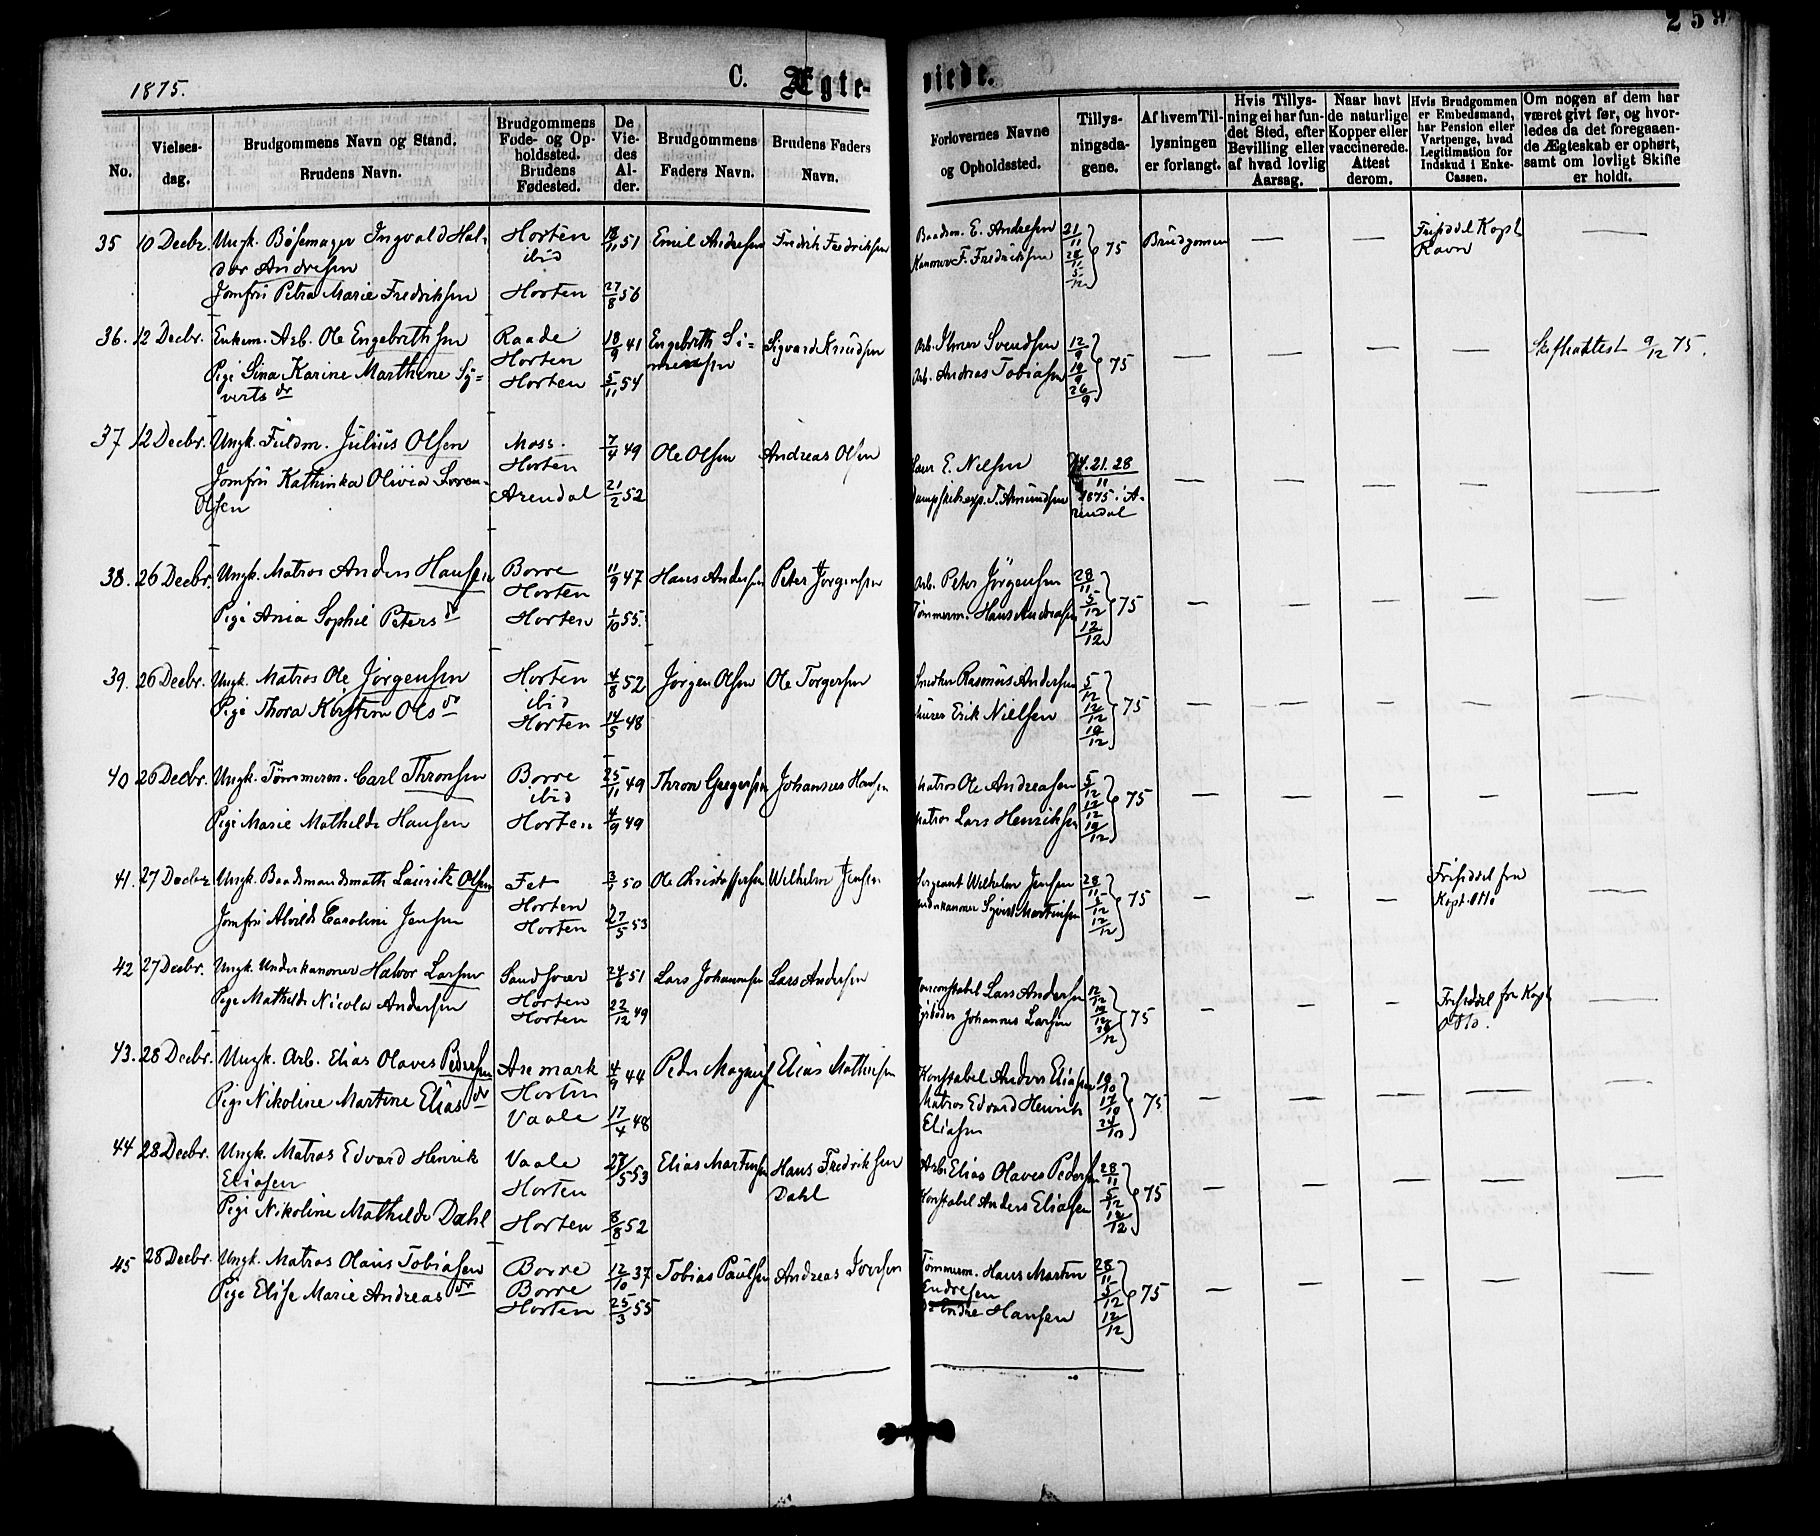 259
1875.
C. Ægte-
viede.
No.
Vielses-
dag.
Brudgommens Navn og Stand.
Brudens Navn.
Brudgommens
Føde- og Op-
holdssted.
Brudens
Fødested.
De
Vie-
des
Al-
der.
Brudgommens
Faders Navn.
Brudens Faders
Navn.
Forlovernes Navne
og Opholdssted.
Tillys-
ningsda-
gene.
Af hvem Til-
lysningen
er forlangt.
Hvis Tillys-
ning ei har fun-
det Sted, efter
Bevilling eller
af hvad lovlig
Aarsag.
Naar havt
de naturlige
Kopper eller
vaccinerede.
Attest
derom.
Hvis Brudgommen
er Embedsmand,
har Pension eller
Vartpenge, hvad
Legitimation for
Indskud i Enke-
Cassen.
Om nogen af dem har
været givt før, og hvor-
ledes da det foregaaen-
de Ægteskab er ophørt,
samt om lovligt Skifte
er holdt.
35 10 Decbr. Ungk. Bøsemager Ingvald Hal-
dor Andresen
Jomfru Petra Marie Fredriksen
Horten
ibid
Horten
18/11 51
27/8 56
Emil Andresen
Fredrik Fredriksen
Baadsm. E. Andresen
Kanoner F. Fredriksen
21/11 28/11 5/12 75
Brudgomen
— —
Frisedel Kapt.
Ravn
—
36. 12 Decbr. Enkem. Arb. Ole Engebrethsen
Pige Sina Karine Marthine Sy-
verts dr
Raade
Horten
Horten
18/9 41
5/11 54
Engebreth Si-
mensen
Sigvard Knudsen
Arb. Iver Svendsen
Arb. Andreas Tobiasen
12/9 19/9 26/9 75
— — — —
Skifteattest 9/12 75.
37 12 Decbr. Ungk. Fuldm. Julius Olsen
Jomfru Kathinka Olivia Soren-
Olsen
Moss.
Horten
Arendal
7/4 49
21/2 52
Ole Olsen
Andreas Olsen
E. Nilsen
T. Amundsen
14. 21. 28
11
1875 i A-
rendal
— — — — —
38. 26 Decbr. Ungk. Matros Anders Hansen
Pige Ania Sophie Peters dr
Borre
Horten
Horten
11/9 47
1/10 55.
Hans Andersen
Peter Jørgensen
Arb. Peter Jörgensen
Tömmerm. Hans Andreasen
28/11 5/12 12/12 75
— — — — —
39. 26 Decbr. Ungk. Matros Ole Jørgensen
Pige Thora Kirstine Ols dr
Horten
ibid
Horten
4/8 52
14/5 48
Jørgen Olsen
Ole Torgersen
Snedker Rasmus Andersen
Murer Erik Nielsen
5/12 12/12 19/12 75
— — — — —
40 26 Decbr. Ungk. Tömmerm. Carl Thronsen
Pige Marie Mathilde Hansen
Borre
ibid
Horten
25/11 49
4/9 49
Thron Gregersen
Johannes Hansen
Matros Ole Andreasen
Matros Lars Henriksen
5/12 12/12 19/12 75
— — — — —
41. 27 Decbr Ungk. Baadsmandsmath Lauritz Olsen
Jomfru Alvilde Caroline Jensen
Fet
Horten
Horten
50
27/5 53
Ole Christophersen
Wilhelm Jensen
Sergeant Wilhelm Jensen
Underkanoner Syvert Martinsen
28/11 5/12 12/12 75
— — —
Frisedel fra
Kapt. Otto
—
42 27 Decbr. Ungk. Underkanoner Halvor Larsen
Pige Mathilde Nicola Andersen
Sandsvær
Horten
Horten
24/6 51
22/12 49
Lars Johannesen
Lars Andersen
Lars Andersen
Johannes Larsen
12/12 19/12 26/12 75
— — —
Frisedel fra Kapt
Otto.
—
43. 28 Decbr. Ungk. Arb. Elias Olaves Pedersen
Pige Nikoline Martine Elias dr
Aremark
Horten
Vaale
4/9 44
17/4 48
Peder Magnus
Elias Mathisen
Konstabel Anders Eliasen
Matros Edvard Henrik
Eliasen
10/10 17/10 24/10 75
— — — — —
44 28 Decbr. Ungk. Matros Edvard Henrik
Eliasen
Pige Nikoline Mathilde Dahl
Vaale
Horten
Horten
27/5 53
8/8 52
Elias Martinsen
Hans Fredriksen
Dahl
Arb. Elias Olaves Pedersen
Konstabel Anders Eliasen
28/11 5/12 12/12 75
— — — — —
45 28 Decbr. Ungk. Matros Olaus Tobiasen
Pige Elise Marie Andreas dr
Borre
Borre
Horten
12/10 37
25/3 55
Tobias Paulsen
Andreas Iversen
Tömmerm. Hans Martin
Endresen
do Endre Hansen
28/11 5/12 12/12 75
— — — — —